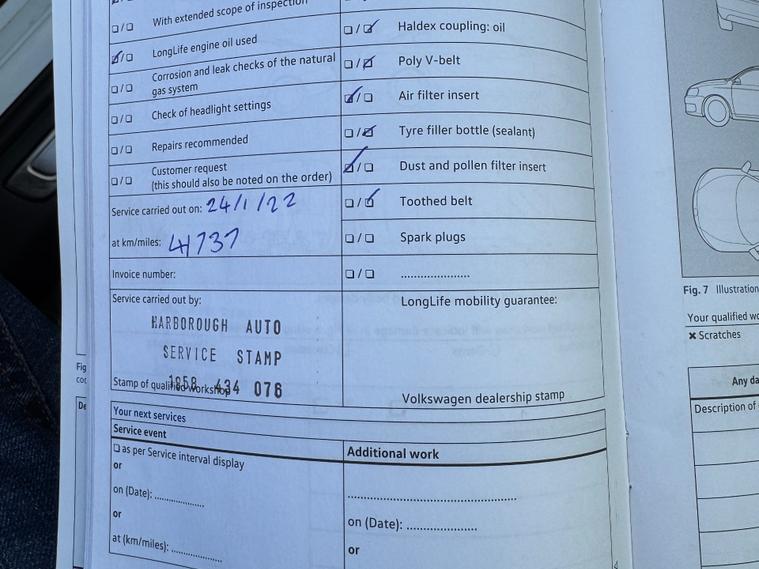 ❏/❏ With extended scope of inspection
☑/❏ LongLife engine oil used
❏/❏ Corrosion and leak checks of the natural
gas system
❏/❏ Check of headlight settings
❏/❏ Repairs recommended
❏/❏ Customer request
(this should also be noted on the order)
Service carried out on: 24/1/22
at km/miles: 41737
Invoice number:
Service carried out by:
HARBOROUGH AUTO
SERVICE STAMP
1858 434 076
Stamp of qualified workshop
❏/☑ Haldex coupling: oil
❏/☑ Poly V-belt
☑/❏ Air filter insert
❏/☑ Tyre filler bottle (sealant)
☑/❏ Dust and pollen filter insert
❏/☑ Toothed belt
❏/❏ Spark plugs
❏/❏ .....................
LongLife mobility guarantee:
Volkswagen dealership stamp
Your next services
Service event
❏ as per Service interval display
or
on (Date): ................
or
at (km/miles): ................
Additional work
..................................................
on (Date): .....................
or
Fig. 7 Illustration
Your qualified
✖ Scratches
Any
Description of